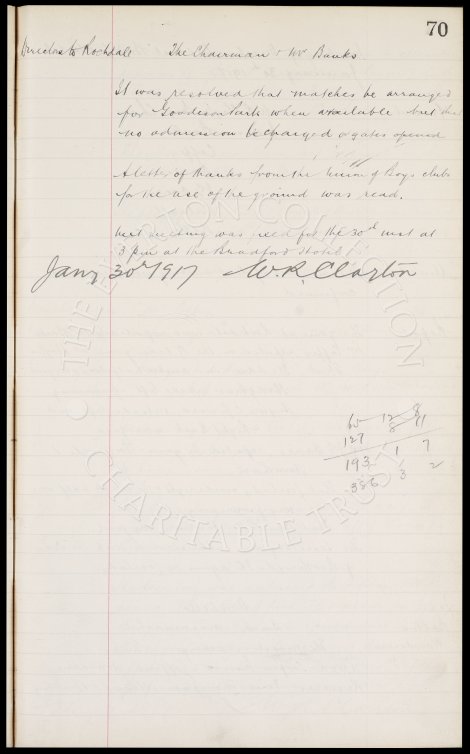 70
Directors to Rochdale The Chairman & Mr Banks
It was resolved that matches be arranged
for Goodison Park when available but that
no admission be charged or gates opened
A letter of thanks from the Union of Boys clubs
for the use of the ground was read.
next meeting was fixed for the 30th inst at
3 pm at the Bradford Hotel
Jany 30th 1917 W. R. Clayton
12 8
127 8 11
193 1 7
336 3 2
© THE EVERTON COLLECTION
CHARITABLE TRUST